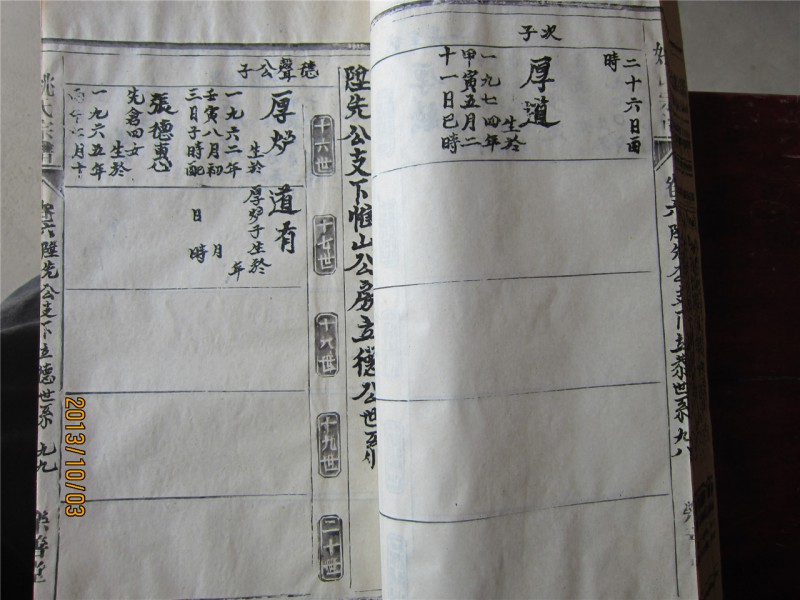 二十六日酉
時
次子
厚道
生於
一九七四年
甲寅五月二
十一日巳時
卷六陞先公支下立恭世系九八
陞先公支下惟山公房立德公世系
十六世
十七世
十八世
十九世
二十世
聽聲公子
厚炉
生於
一九六二年
壬寅八月初
三日子時配
張德惠
生於
一九六五年
道有
厚炉子生於
年
月
日
時
卷六陞先公支下立德世系九九
2013/10/03